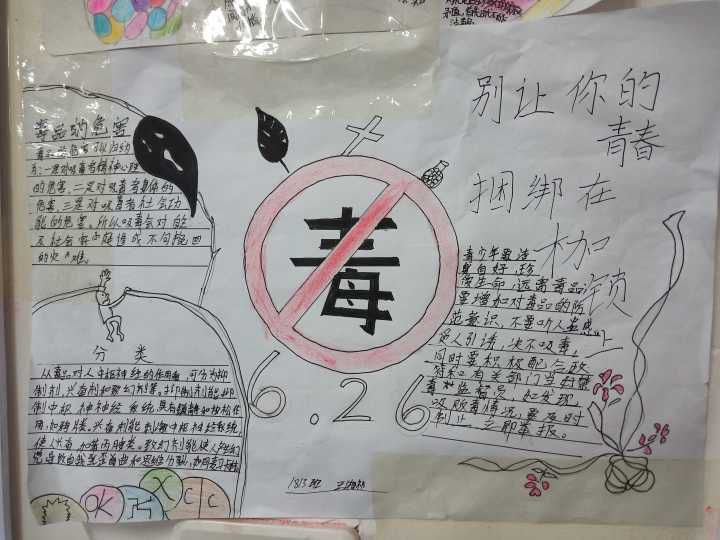 毒品的危害
的危害,二是对吸毒者身体的
危害,三是对吸毒者社会功
能的危害。所以吸毒会对自己
及社会和家庭造成不可挽回
的灾难。
分类
从毒品对人中枢神经的作用看,可分为抑
制剂、兴奋剂和致幻剂等。抑制剂能抑
制中枢神经系统,具有镇静和放松作
用,如鸦片类。兴奋剂能刺激中枢神经系统
使人兴奋,如苯丙胺类。致幻剂能使人产生幻
觉,导致自我歪曲和思维分裂,
OK
X
C C
毒
6.26
1813班
别让你的
青春
捆绑在
枷
锁
青少年要洁
身自好,珍
爱生命,远离毒品
要增加对毒品的防
范意识,不要
他人引诱,决不吸毒,
同时要积极配合政
府和有关部门当好禁
毒监督员,如发现
吸贩毒情况,要及时
制止,立即举报。